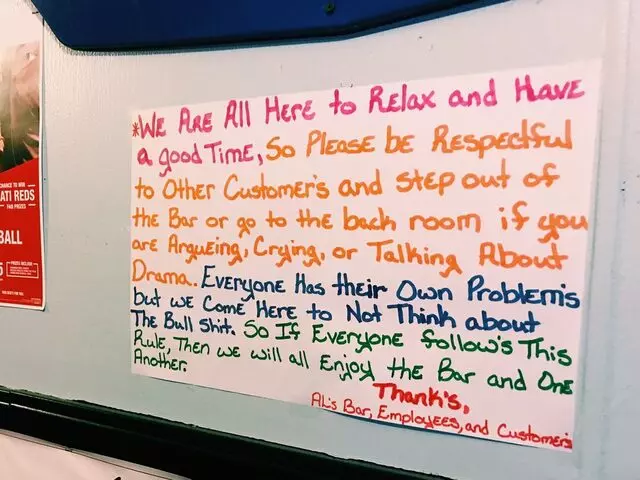 *We Are All Here to Relax and Have
a good Time, So Please be Respectful
to Other Customer's and step out of
the Bar or go to the back room if you
are Argueing, Crying, or Talking About
Drama.. Everyone Has their Own Problem's
but we Come Here to Not Think about
The Bull shit. So If Everyone follow's This
Rule, Then we will all Enjoy the Bar and One
Another.
Thank's,
AL's Bar, Employees, and Customer's
CHANCE TO WIN
ATI REDS
BALL